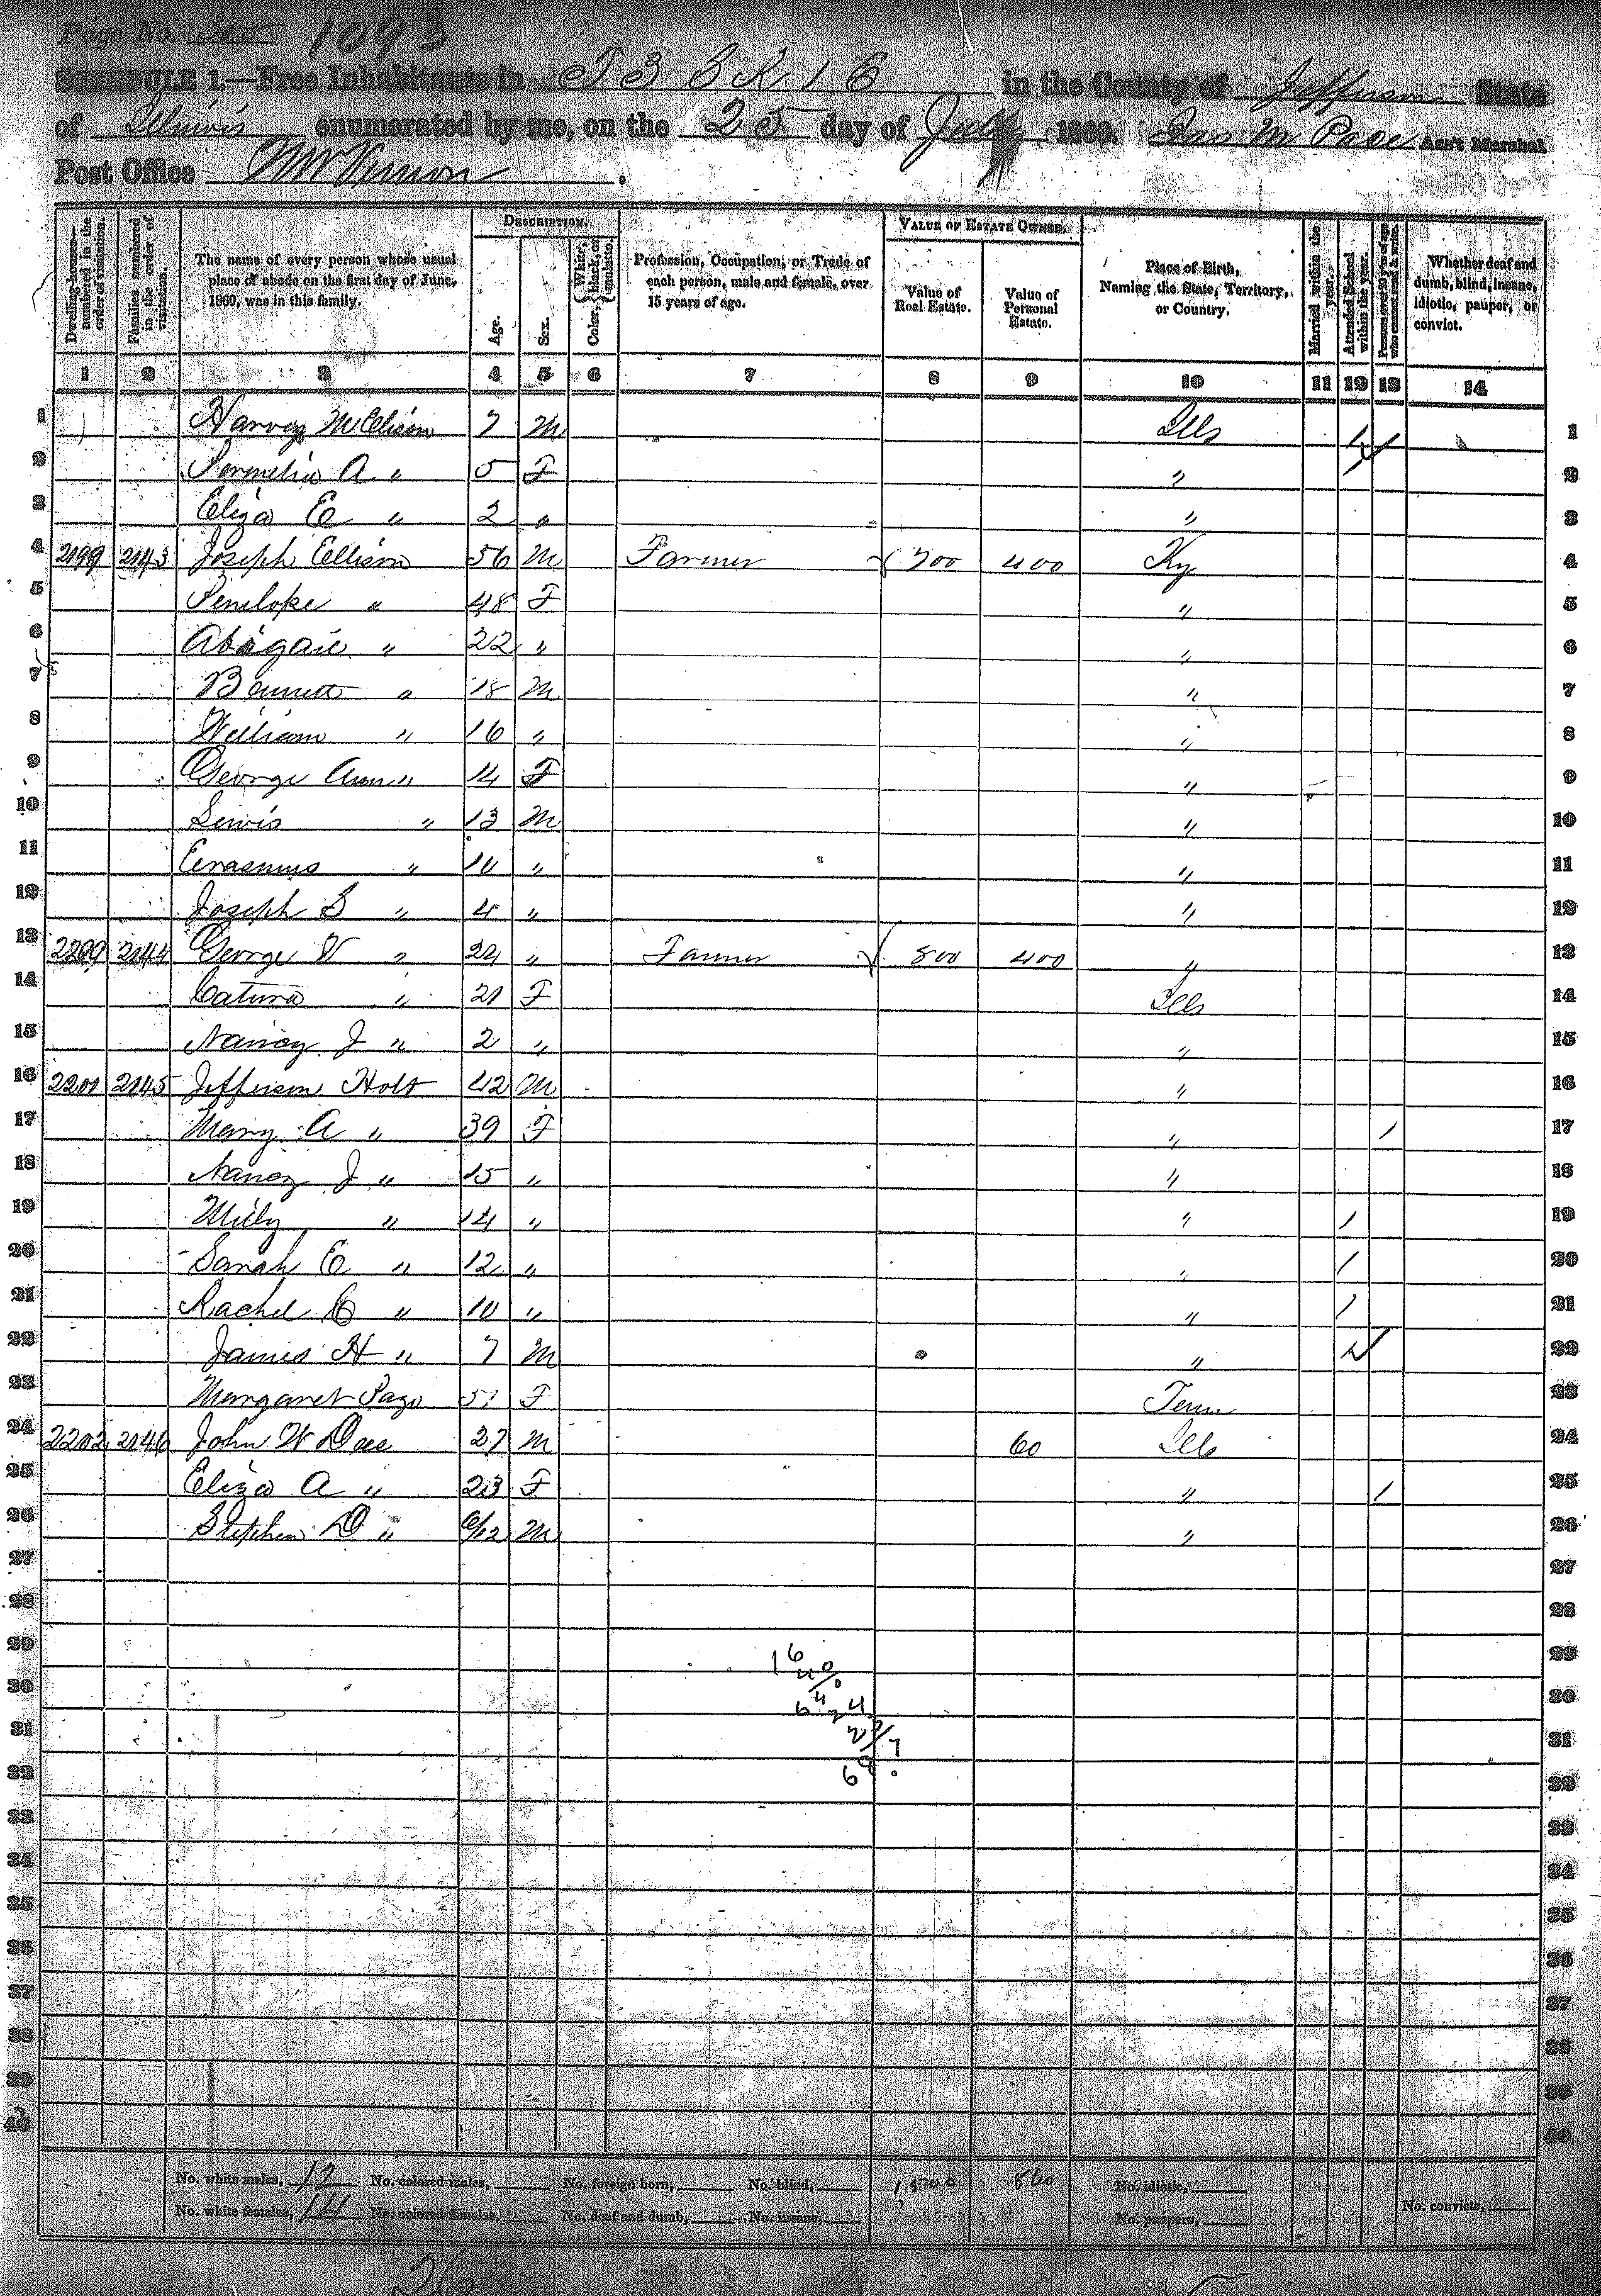 Page No. 305 1093
SCHEDULE 1.—Free Inhabitants in T 3 S R 1 E in the County of Jefferson State
of Illinois enumerated by me, on the 25 day of July 1860. Jas M Pace Ass't Marshal
Post Office Mt Vernon.
Dwelling-houses—numbered in the order of visitation.
Families numbered in the order of visitation.
The name of every person whose usual place of abode on the first day of June, 1860, was in this family.
DESCRIPTION.
Age.
Sex.
Color, {White, black, or mulatto.
Profession, Occupation, or Trade of each person, male and female, over 15 years of age.
VALUE OF ESTATE OWNED.
Value of Real Estate.
Value of Personal Estate.
Place of Birth, Naming the State, Territory, or Country.
Married within the year.
Attended School within the year.
Persons over 20 y'rs of age who cannot read & write.
Whether deaf and dumb, blind, insane, idiotic, pauper, or convict.
1 2 3 4 5 6 7 8 9 10 11 12 13 14
1 Harvey McElison 7 M Ills / 1
2 Permelia A " 5 F " / 2
3 Eliza E " 2 " " 3
4 2199 2143 Joseph Ellison 56 M Farmer 700 400 Ky 4
5 Penelope " 48 F " 5
6 Abigail " 22 " " 6
7 Bennett " 18 M " 7
8 William " 16 " " 8
9 George Ann " 14 F " 9
10 Lewis " 13 M " 10
11 Erasmus " 10 " " 11
12 Joseph S " 4 " " 12
13 2200 2144 George W " 24 " Farmer 800 400 " 13
14 Caturo " 21 F Ills 14
15 Nancy J " 2 " " 15
16 2201 2145 Jefferson Holt 42 M " 16
17 Mary A " 39 F " / 17
18 Nancy J " 15 " " 18
19 Mily " 14 " " / 19
20 Sarah E " 12 " " / 20
21 Rachel C " 10 " " / 21
22 James H " 7 M " / 22
23 Margaret Page 57 F Tenn 23
24 2202 2146 John W Dees 27 M 60 Ills 24
25 Eliza A " 23 F " / 25
26 Stephen D " 6/12 M " 26
27 27
28 28
29 29
30 30
31 31
32 32
33 33
34 34
35 35
36 36
37 37
38 38
39 39
40 40
No. white males, 12 No. colored males, No. foreign born, No. blind, 1500 860 No. idiotic,
No. white females, 14 No. colored females, No. deaf and dumb, No. insane, No. paupers, No. convicts,
26